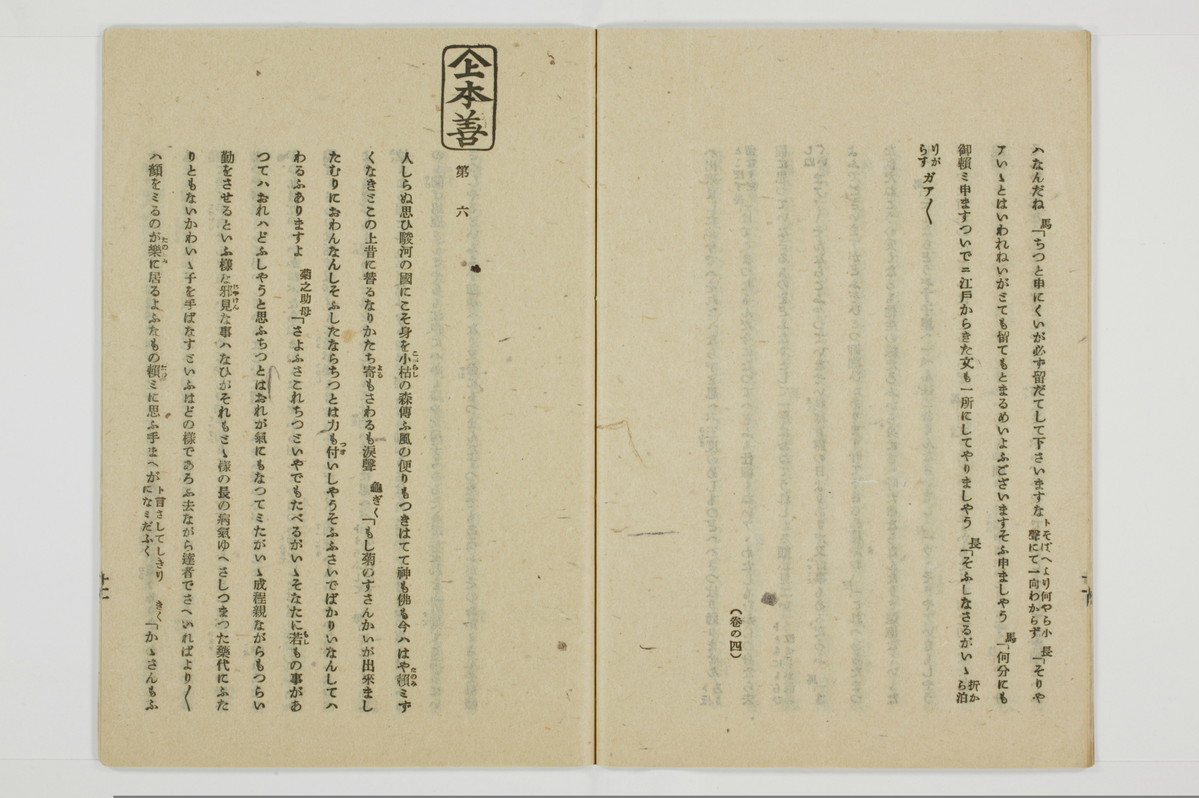 ハなんだね 馬「ちつと申にくいが必ず留だてして下さいますな トそばへより何やら小聲にて一向わからず 長「そりや
アいゝとはいわれねいがとても留てもとまるめいよふございますそふ申ましやう 馬「何分にも
御頼ミ申ますついでニ江戸からきた文も一所にしてやりましやう 長「そふしなさるがいゝ 折から泊
りがらす ガア〱
(巻の四)
仝本善
第六
人しらぬ思ひ駿河の國にこそ身を小枯の森傳ふ風の便りもつきはてて神も佛も今ハはや頼ミず
くなきとこの上昔に替るなりかたち寄もさわるも涙聲 龜ぎく「もし菊のすさんかいが出來まし
たむりにおわんなんしそふしたならちつとは力も付いしやうそふふさいでばかりいなんしてハ
わるふありますよ 菊之助母「さよふさこれちつといやでもたべるがいゝそなたに若もの事があ
つてハおれハどふしやうと思ふちつとはおれが氣にもなつてミたがいゝ成程親ながらもつらい
勤をさせるといふ様な邪見な事ハなひがそれもとゝ様の長の病氣ゆへさしつまつた藥代にふた
りともないかわいゝ子を手ばなすといふはどの様であろふ去ながら達者でさへいればより〱
ハ顔をミるのが樂に居るよふたもの頼ミに思ふ手まへが ト言さしてしきりになミだふく きく「かゝさんもふ